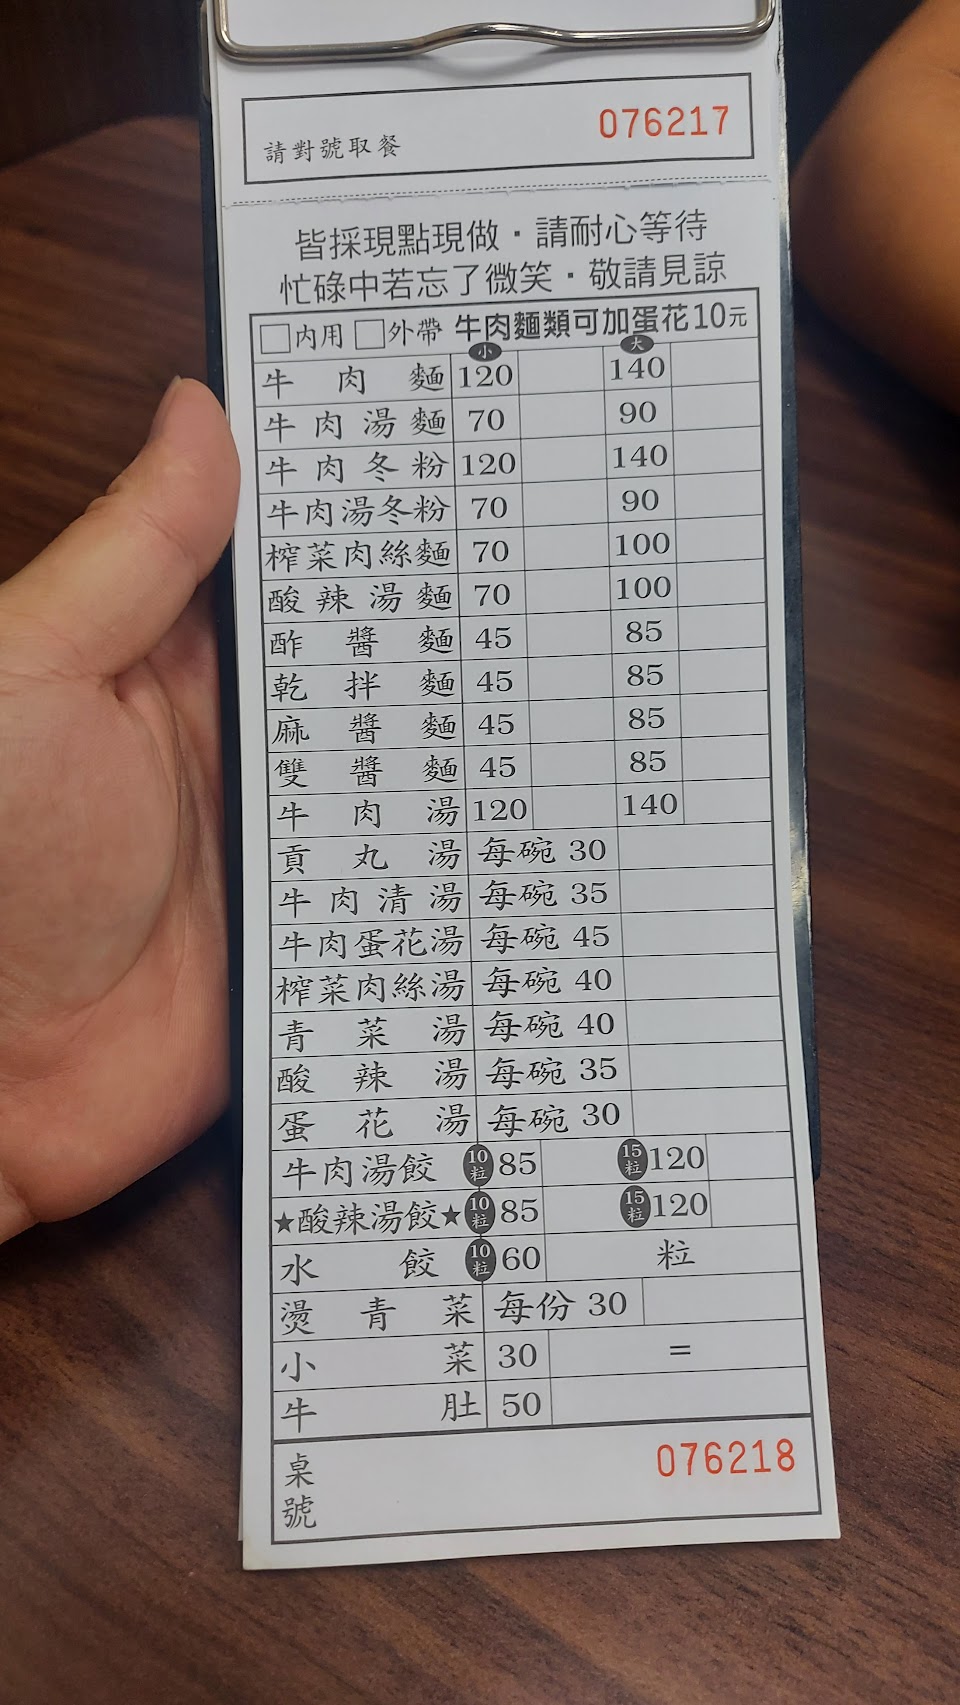 076217
請對號取餐
皆採現點現做．請耐心等待
忙碌中若忘了微笑．敬請見諒
□內用 □外帶 牛肉麵類可加蛋花10元
小 大
牛肉麵 120 140
牛肉湯麵 70 90
牛肉冬粉 120 140
牛肉湯冬粉 70 90
榨菜肉絲麵 70 100
酸辣湯麵 70 100
酢醬麵 45 85
乾拌麵 45 85
麻醬麵 45 85
雙醬麵 45 85
牛肉湯 120 140
貢丸湯 每碗 30
牛肉清湯 每碗 35
牛肉蛋花湯 每碗 45
榨菜肉絲湯 每碗 40
青菜湯 每碗 40
酸辣湯 每碗 35
蛋花湯 每碗 30
牛肉湯餃 10粒 85 15粒 120
★酸辣湯餃★ 10粒 85 15粒 120
水餃 10粒 60 粒
燙青菜 每份 30
小菜 30 =
牛肚 50
桌號 076218